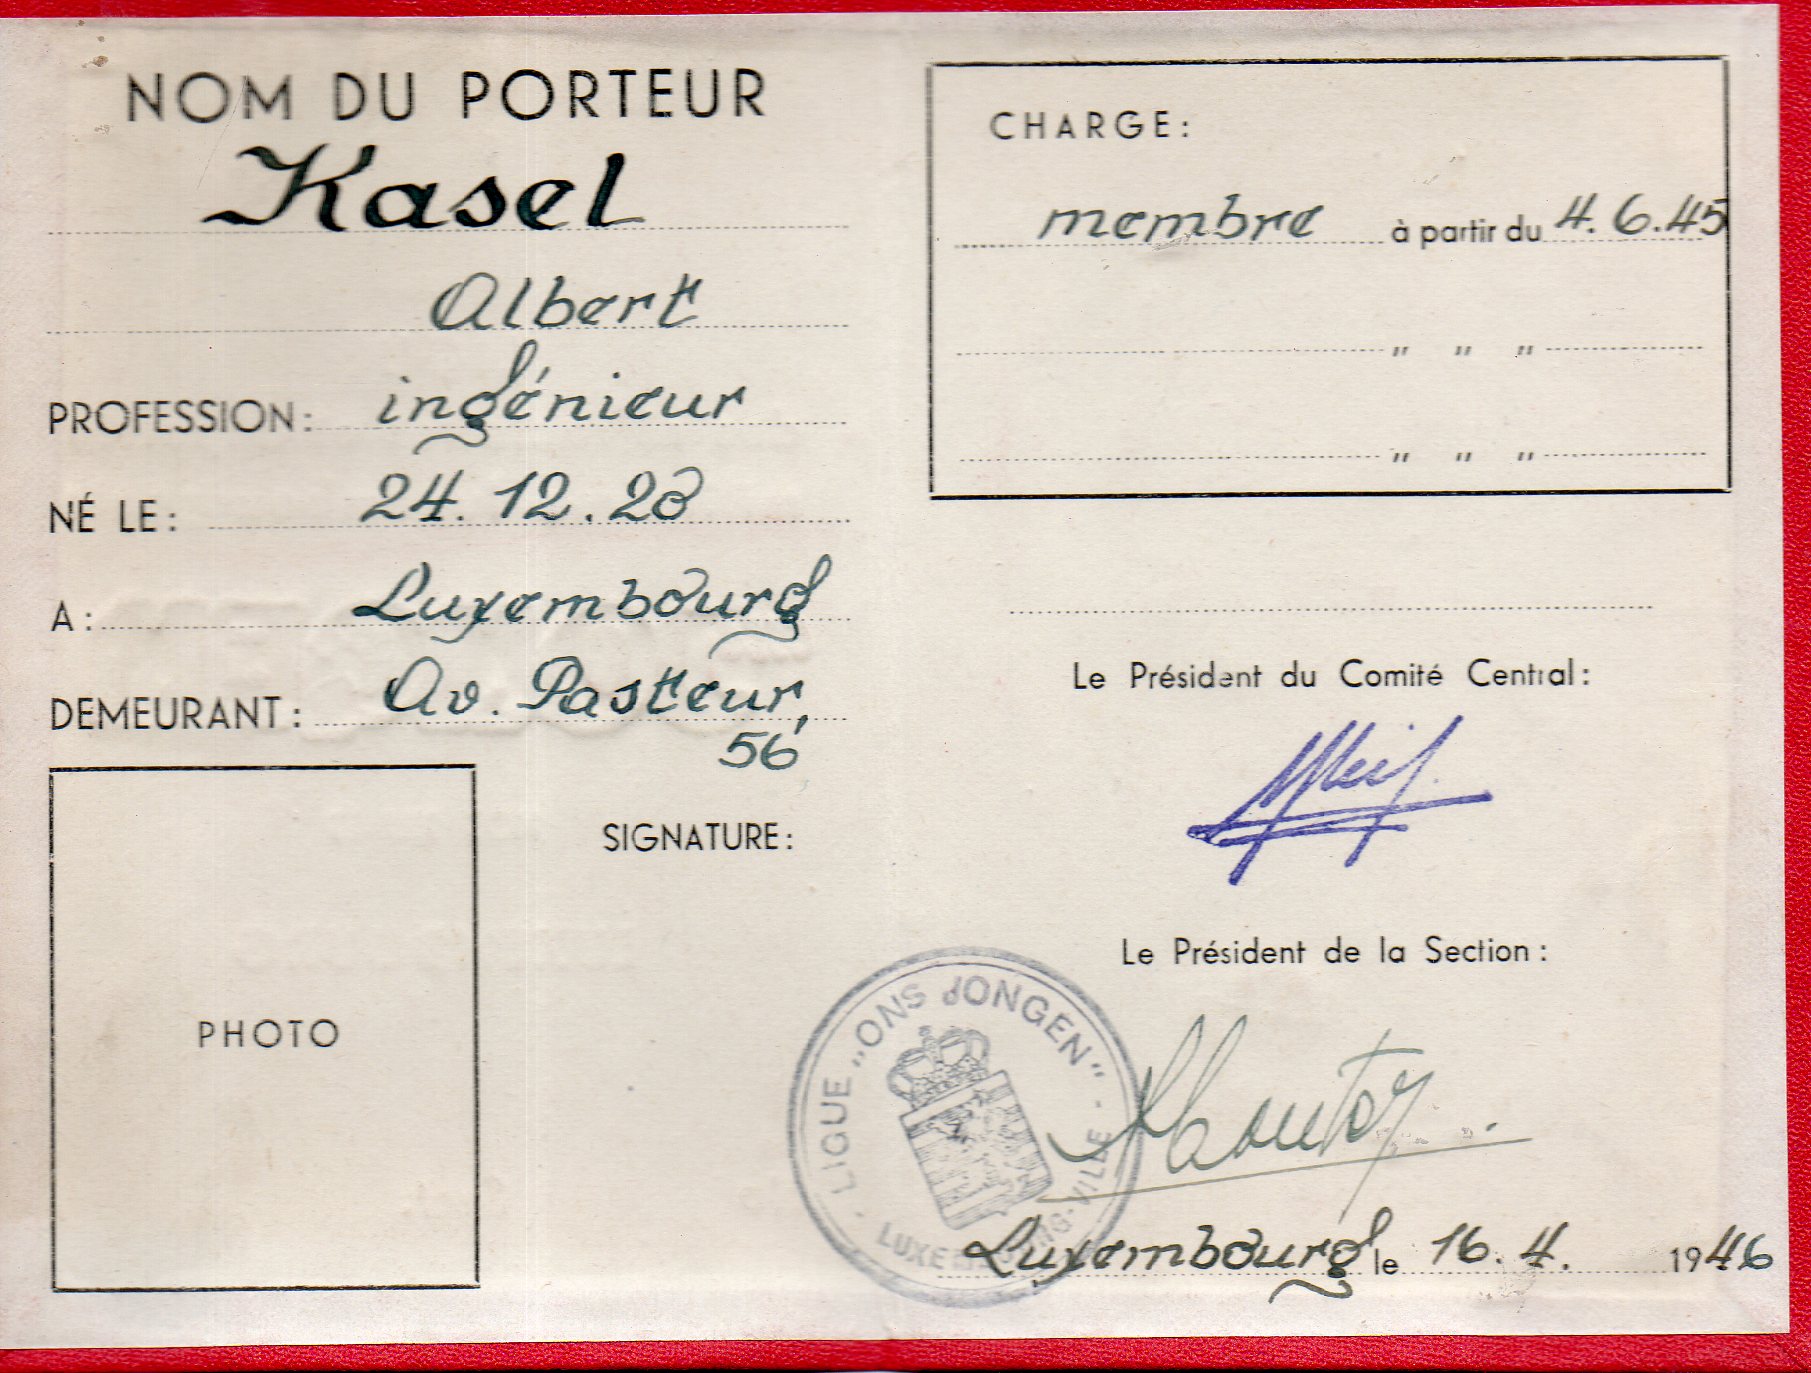 NOM DU PORTEUR
Kasel
Albert
PROFESSION: ingénieur
NÉ LE: 24.12.20
A: Luxembourg
DEMEURANT: Av. Pasteur,
56
PHOTO
SIGNATURE:
CHARGE:
membre à partir du 4.6.45
" " "
" " "
Le Président du Comité Central:
Le Président de la Section:
LIGUE „ONS JONGEN"
LUXEMBOURG-VILLE
Luxembourg le 16.4. 1946